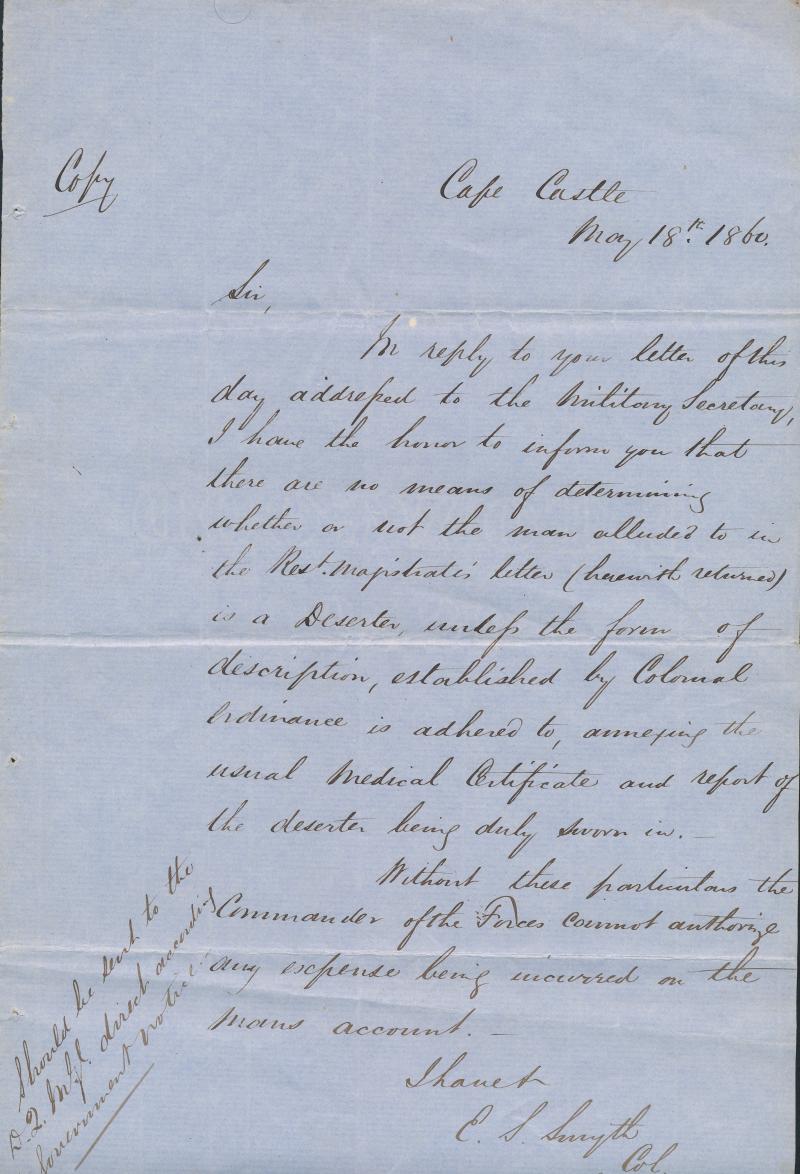 Copy
Cape Castle
May 18th. 1860.
Sir,
In reply to your letter of this
day addressed to the Military Secretary,
I have the honor to inform you that
there are no means of determining
whether or not the man alluded to in
the Rest. Magistrate's letter (herewith returned)
is a Deserter, unless the form of
description, established by Colonial
Ordinance is adhered to, annexing the
usual Medical Certificate and report of
the deserter being duly sworn in. —
Without these particulars the
Commander of the Forces cannot authorize
any expense being incurred on the
mans account. —
I have &
E. S. Smyth
Col.
Should be sent to the
D. Q. M. G. direct according
Government Notice